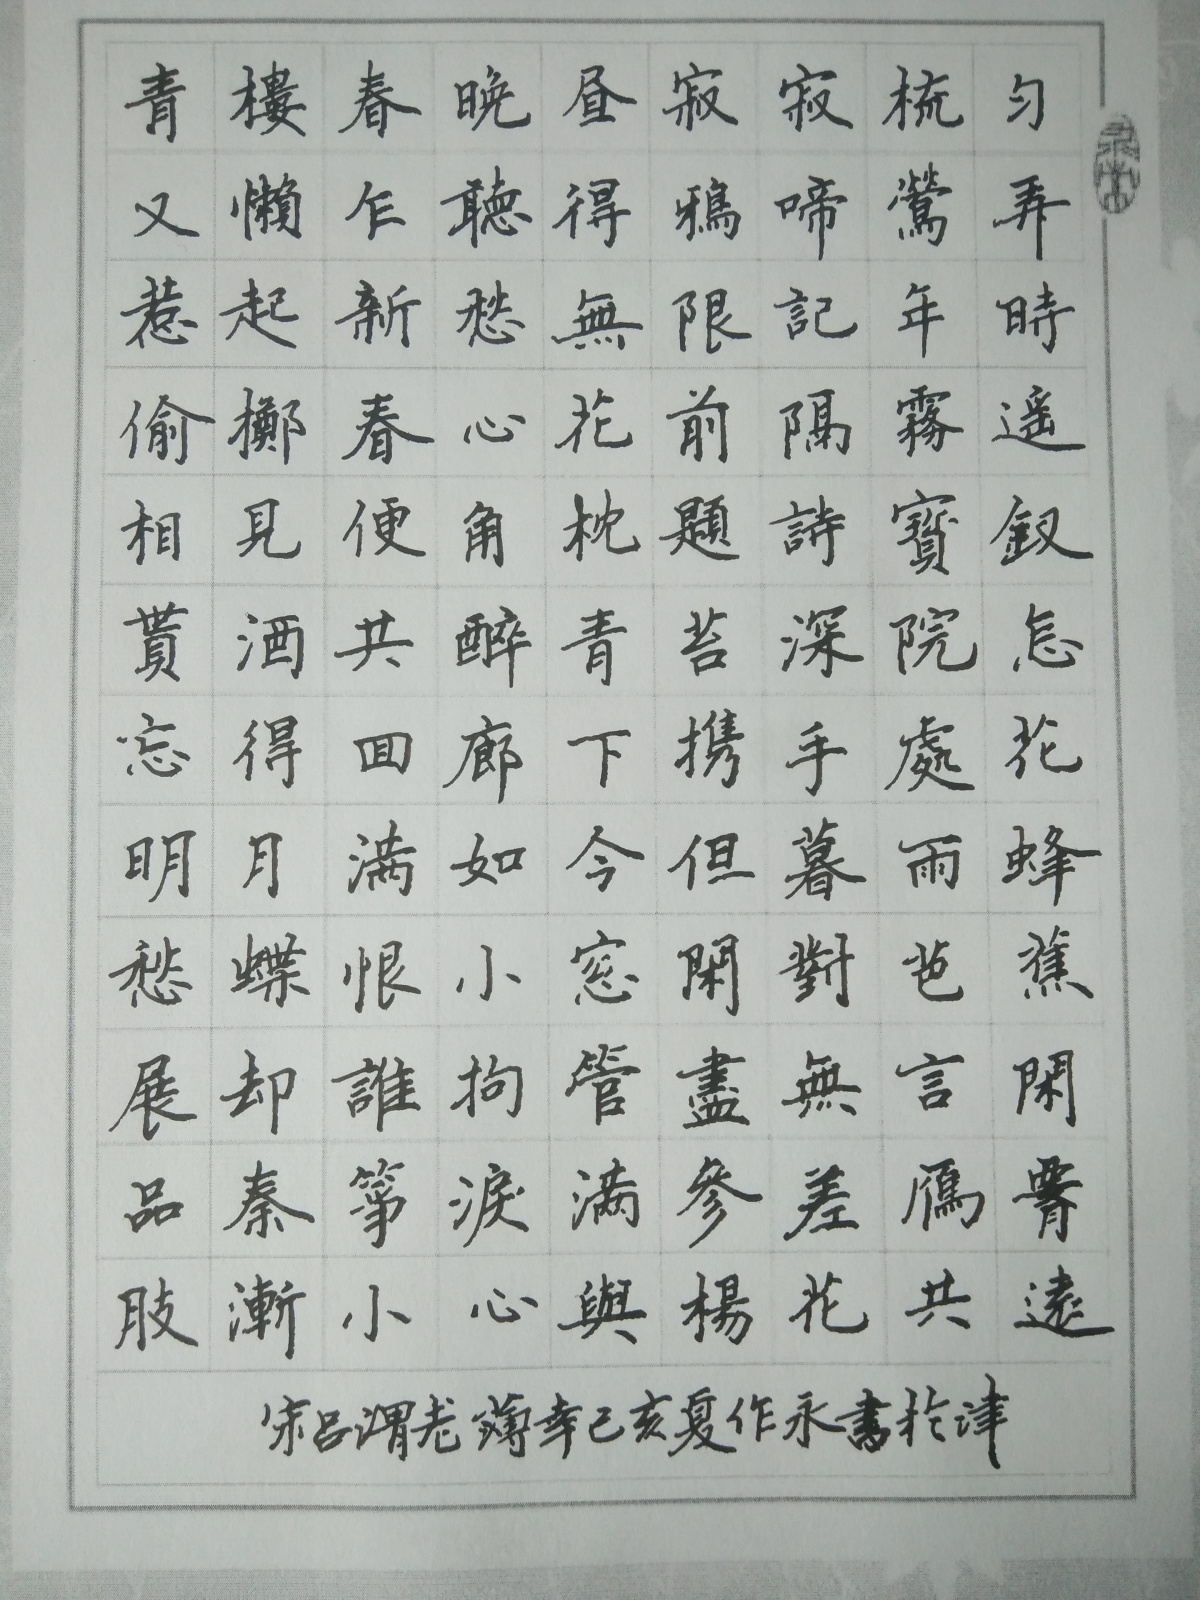 青樓春晚晝寂寂梳勻
又懶乍聽得鴉啼鶯弄
惹起新愁無限記年時
偷擲春心花前隔霧遥
相見便角枕題詩寶釵
貰酒共醉青苔深院怎
忘得回廊下携手處花
明月满如今但暮雨蜂
愁蝶恨小窓閑對芭蕉
展却誰拘管盡無言閑
品秦箏淚满參差鴈霄
肢漸小心與楊花共遠
宋吕渭老薄幸己亥夏作永書於津